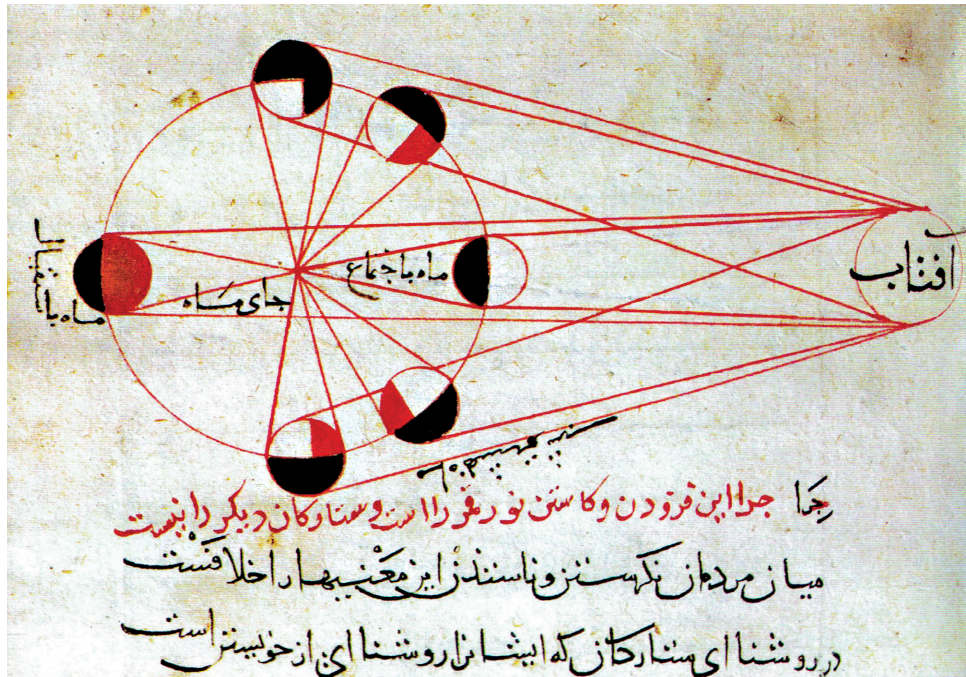 افتاب
ماه باجتماع
جای ماه
ماه باستقبال
چرا چرا این فزودن و کاستن نور قمر را است و ستارکان دیکر را نیست
میان مردمان نکرستن و ناسندن این معنیها را خلافست
در روشنای ستارکان که ایشانرا روشنای از خویشتن است